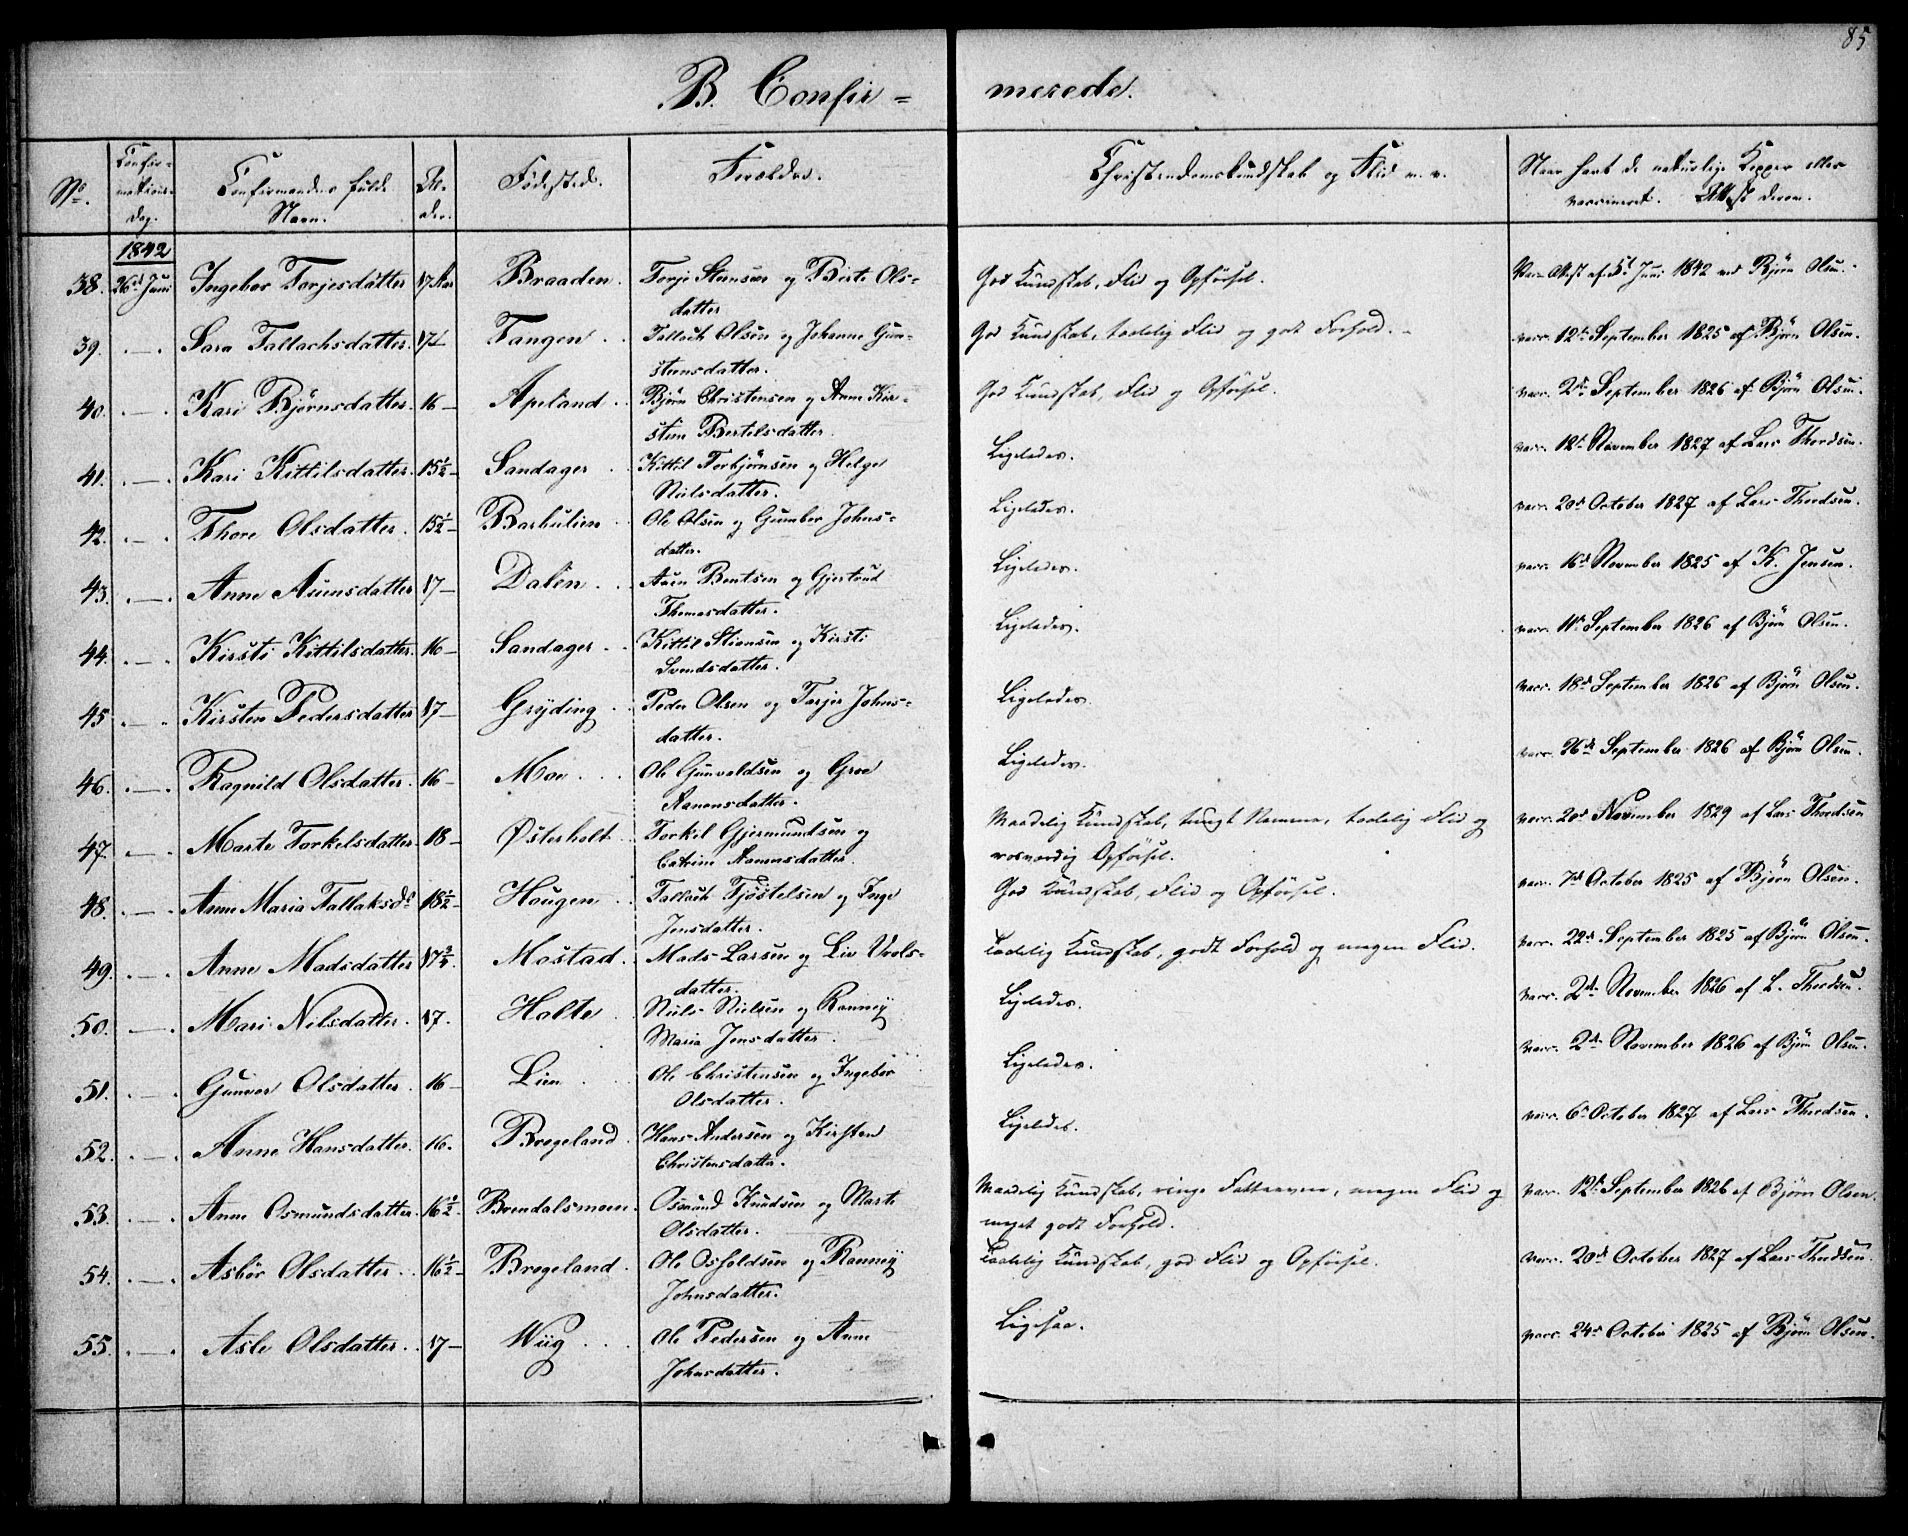 85
B. Confir=merede.
No. Confirmations-Dag. Confirmandens fulde Navn. Alder. Fødested. Forældre. Christendomskundskab og Flid m. v. Naar havt de naturlige Kopper eller vaccineret. Attest derom.
1842
38. 26d Juni Ingebor Torjesdatter 17 Aar Braaden. Torje Stensen og Birte Olsdatter God Kundskab, Flid og Opførsel. Juni 1842 ved Bjørn Olsen.
39. Sara Tallachsdatter. 17 Tangen Tallach Olsen og Johanne Gunstensdatter. God Kundskab, taalelig Flid og godt Forhold. vacc. 12t September 1825 af Bjørn Olsen.
40. Kari Bjørnsdatter. 16 Apeland Bjørn Christensen og Anne Kirstine Bertelsdatter. God Kundskab, Flid og Opførsel. vacc. 2d September 1826 af Bjørn Olsen.
41. Kari Kittilsdatter. 15½ Sandager Kittil Torbjørnsen og Helge Neilsdatter. Ligeledes. vacc. 12t November 1827 af Lars Thordsen.
42. Thore Olsdatter. 15½ Barbulien Ole Olsen og Gumber Johnsdatter. Ligeledes. vacc. 20d October 1827 af Lars Thordsen.
43. Anne Aunsdatter 17 Dalen Auen Bentsen og Gjertrud Thomasdatter. Ligeledes. vacc. 16d November 1825 af K. Jensen.
44. Kirsti Kittilsdatter. 16 Sandager Kittil Stiansen og Kirsti Svendsdatter. Ligeledes. vacc. 11t September 1826 af Bjørn Olsen.
45. Kirsten Pedersdatter 17 Gryding Peder Olsen og Tarjer Johnsdatter. Ligeledes. vacc. 18d September 1826 af Bjørn Olsen.
46. Ragnild Olsdatter. 16 Moe Ole Gunvaldsen og Groe Aanensdatter. Ligeledes. vacc. 26d September 1826 af Bjørn Olsen.
47. Marte Torkelsdatter 18 Østerholt Torkil Gjermundsen og Catrine Aanensdatter. Maadelig Kundskab, tungt Nemme, taalelig Flid og rosværdig Opførsel. vacc. 20d November 1829 af Lars Thordsen
48. Anne Maria Tallaksdr 18½ Hougen Tallach Tjøstelsen og Inge Jensdatter. God Kundskab, Flid og Opførsel. vacc. 7d October 1825 af Bjørn Olsen.
49. Anne Madsdatter 17¾ Mostad. Mads Larsen og Liv Uvolsdatter. Taalelig Kundskab, godt Forhold og megen Flid. vacc. 22d September 1825 af Bjørn Olsen.
50. Mari Nilsdatter. 17. Holte Neils Nielsen og Ranney Maria Jensdatter. Ligeledes. vacc. 2d November 1826 af L. Thordsen.
51. Gunver Olsdatter. 16 Lien Ole Christensen og Ingebor Olsdatter. Ligeledes. vacc. 2d November 1826 af Bjørn Olsen.
52. Anne Hansdatter. 16. Bregeland. Hans Andersen og Kirsten Christensdatter. Ligeledes. vacc. 6t October 1827 af Lars Thordsen.
53. Anne Osmundsdatter. 16½ Brendalsmoen. Osmund Knudsen og Marte Olsdatter. Maadelig Kundskab, ringe Fatteevne, megen Flid og meget godt Forhold. vacc. 12t September 1826 af Bjørn Olsen.
54. Asbør Olsdatter. 16½ Bregeland. Ole Osfoldsen og Ranney Johnsdatter. Taalelig Kundskab, god Flid og Opførsel. vacc. 20d October 1827 af Lars Thordsen.
55. Asle Olsdatter. 17 Wiig Ole Pedersen og Anne Johnsdatter. Ligesaa. vacc. 24d October 1825 af Bjørn Olsen.